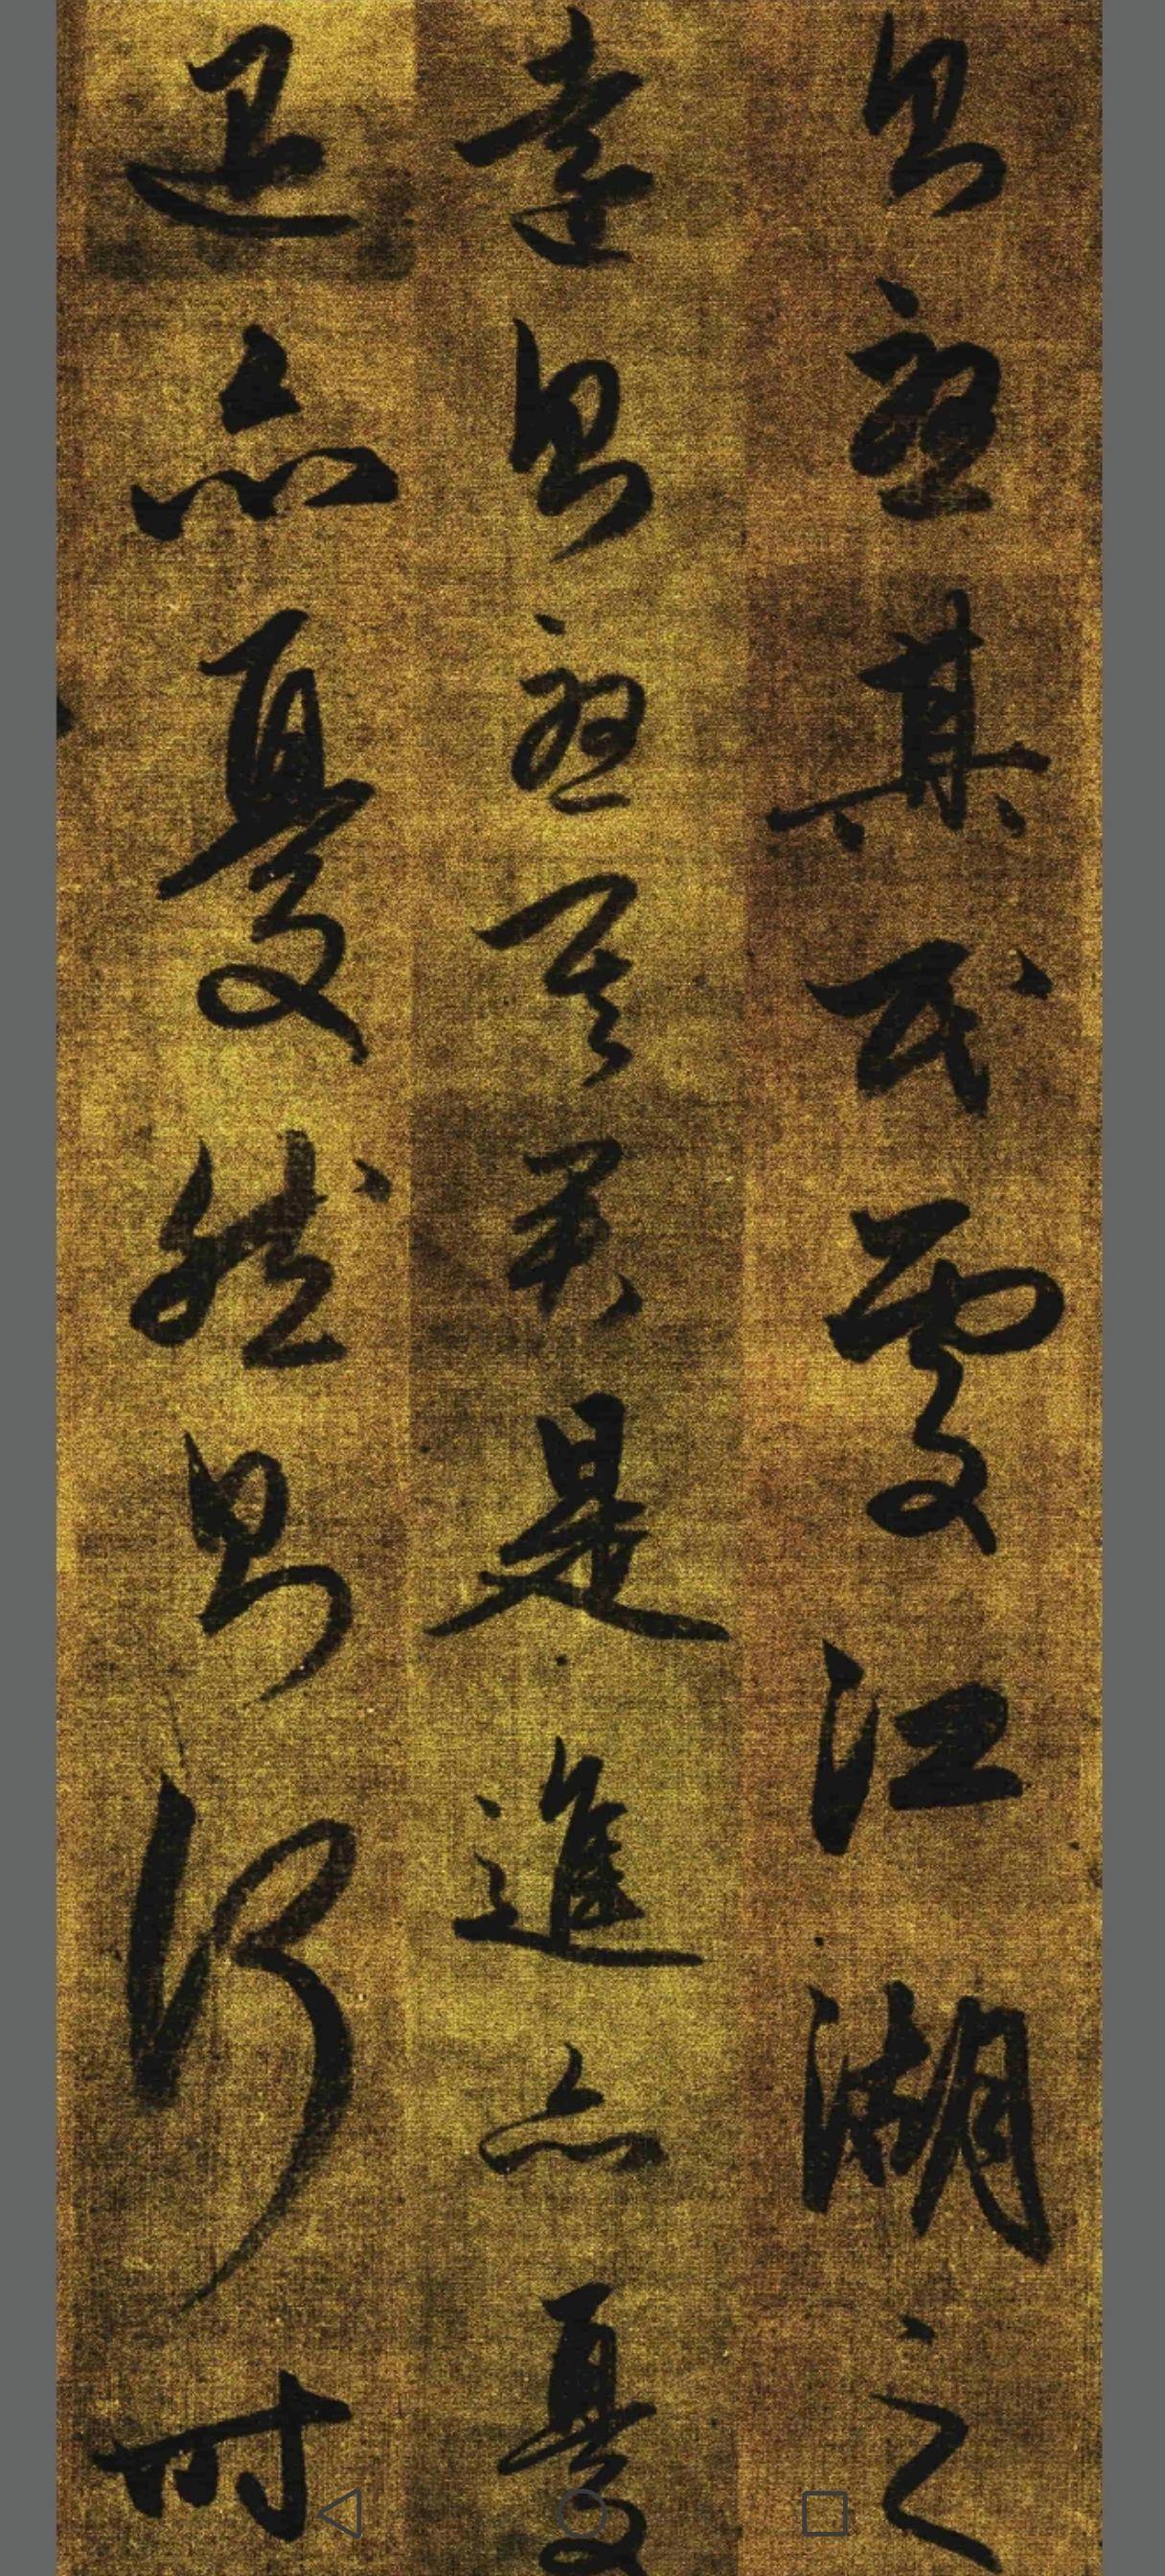 則憂其民處江湖之
遠則憂其君是進亦憂
退亦憂然則何時